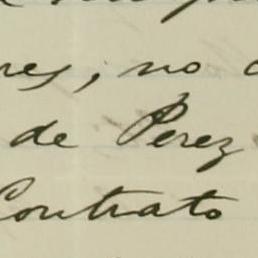 res, no
de Perez
Contrato